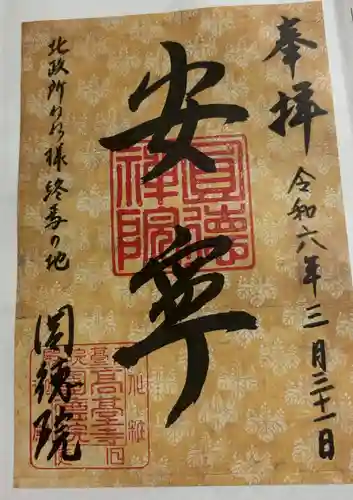 奉拝
令和六年三月三十一日
安寧
北政所ねね様 終焉の地
圓徳院
圓徳禅院
高臺寺